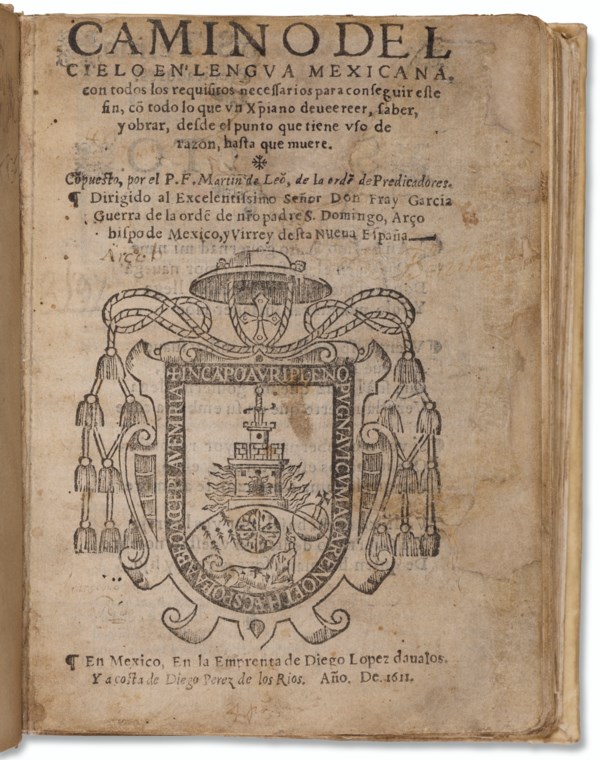 CAMINO DEL
CIELO EN LENGVA MEXICANA,
con todos los requisitos necessarios para conseguir este
fin, cõ todo lo que vn Xp̃iano deue creer, saber,
y obrar, desde el punto que tiene vso de
razon, hasta que muere.
Cõpuesto, por el P. F. Martin de Leõ, de la ordẽ de Predicadores.
¶ Dirigido al Excelentissimo Señor Don Fray Garcia
Guerra de la ordẽ de nr̃o padre S. Domingo, Arço
bispo de Mexico, y Virrey desta Nueua España
Arço
✠ IN CAPO AVRI PLENO PVGNAVI CVM AGARENO
¶ En Mexico, En la Emprenta de Diego Lopez daualos.
Y a costa de Diego Perez de los Rios. Año. De. 1611.